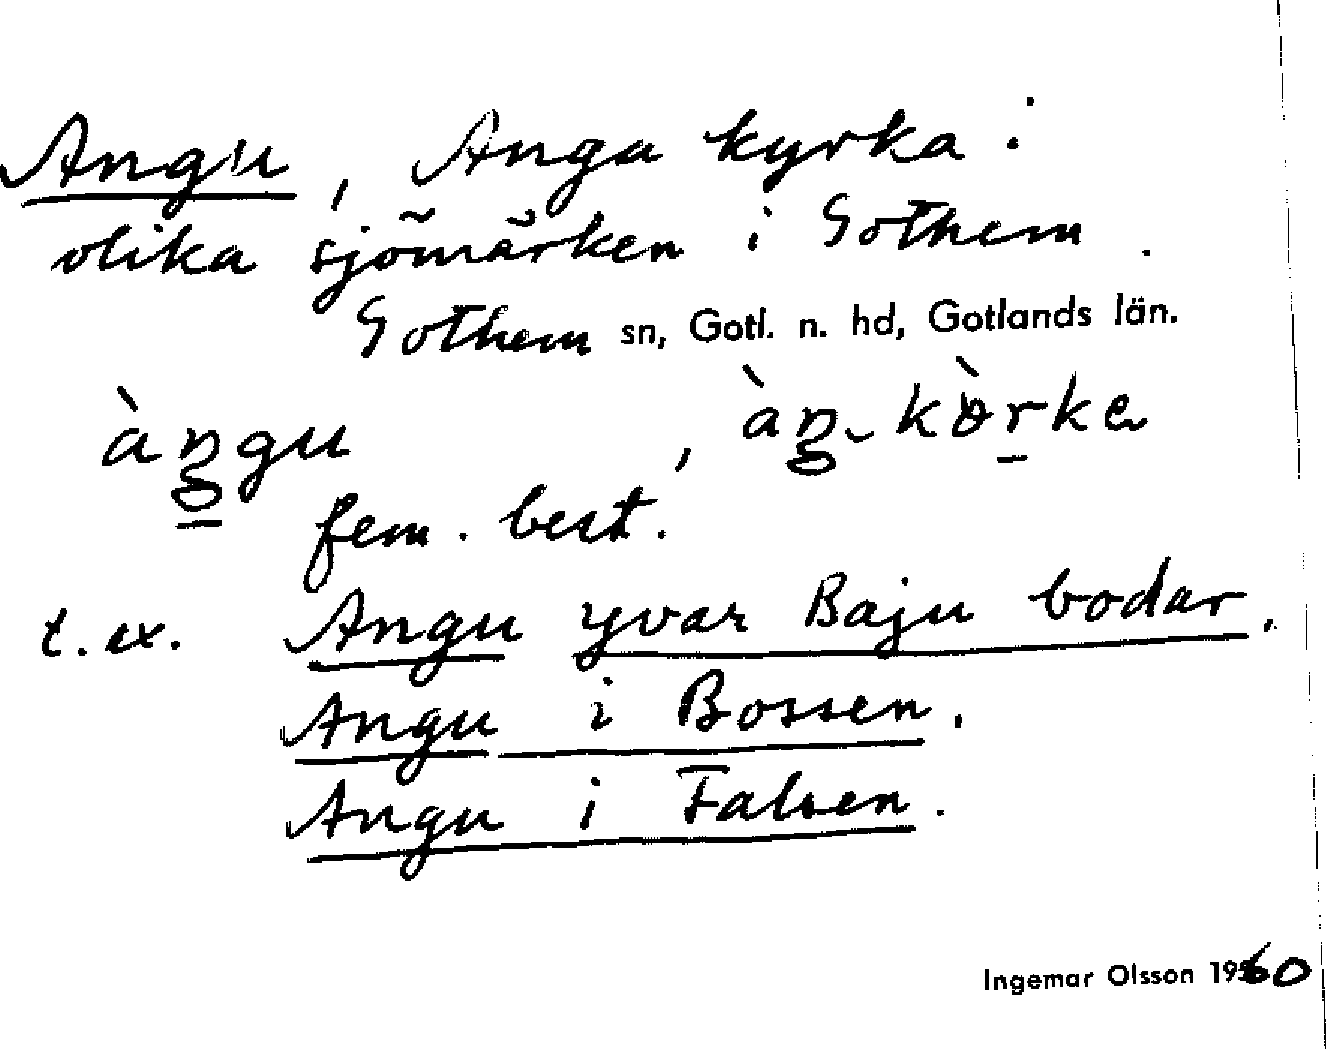 Angu, Anga kyrka i
olika sjömärken i Gothem.
Gothem sn, Gotl. n. hd, Gotlands län.
àngu, àn-kòrke
fem. best.
t.ex. Angu yvar Baju bodar,
Angu i Bossen,
Angu i Falsen.
Ingemar Olsson 1960